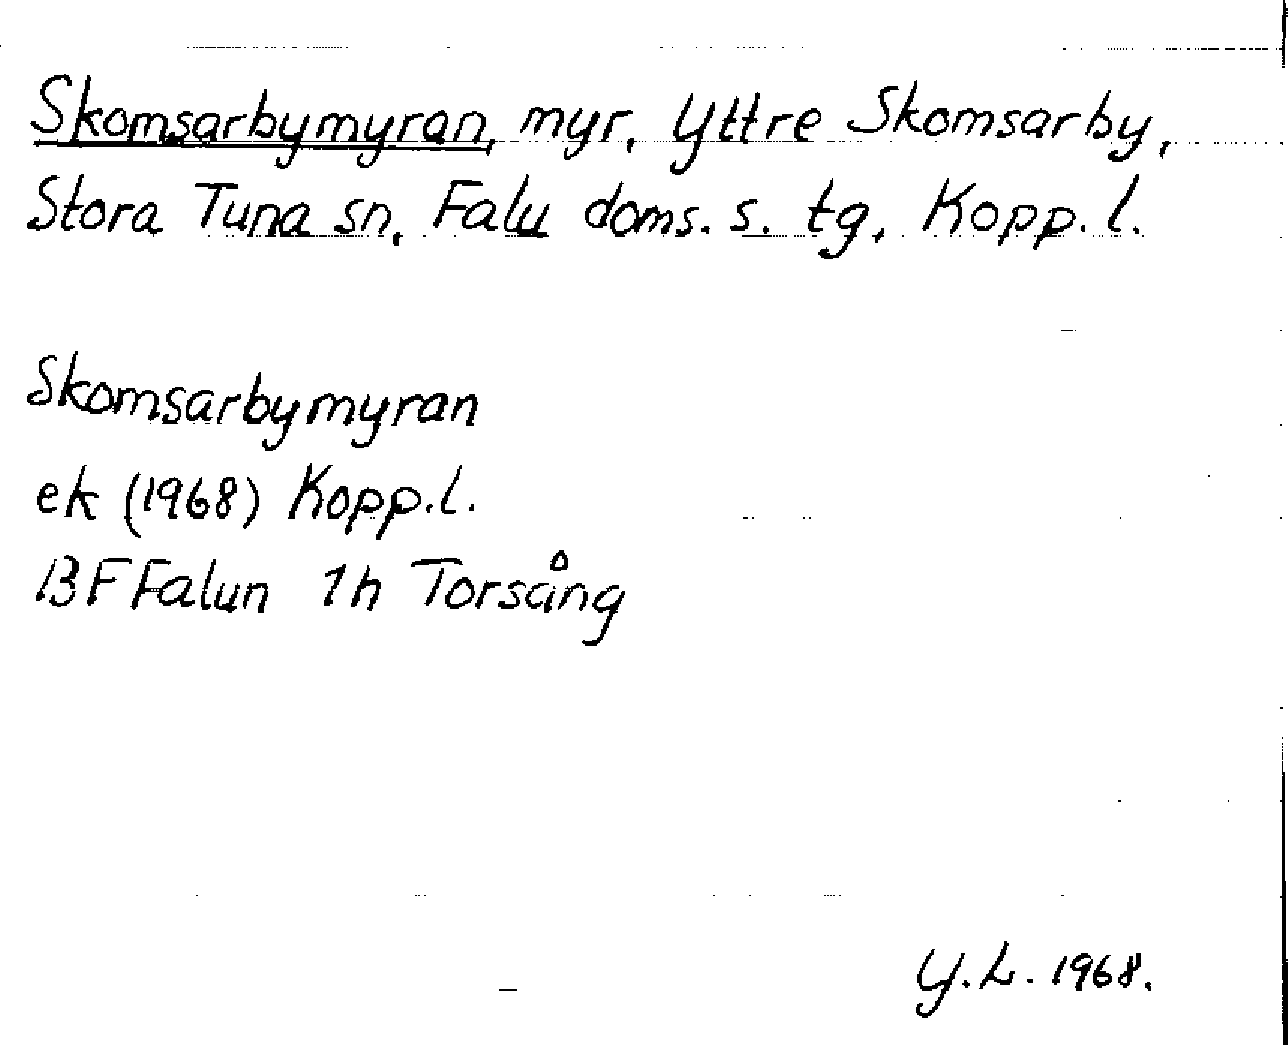 Skomsarbymyran, myr, Yttre Skomsarby,
Stora Tuna sn, Falu doms. s. tg, Kopp. l.
Skomsarbymyran
ek (1968) Kopp.l.
BF Falun 1h Torsång
Y.L. 1968.